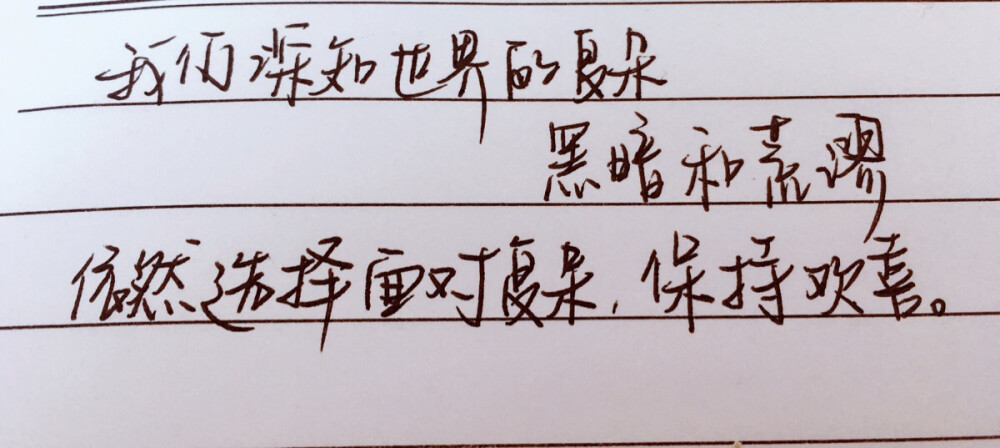 我们深知世界的复杂
黑暗和荒谬
依然选择面对复杂,保持欢喜。